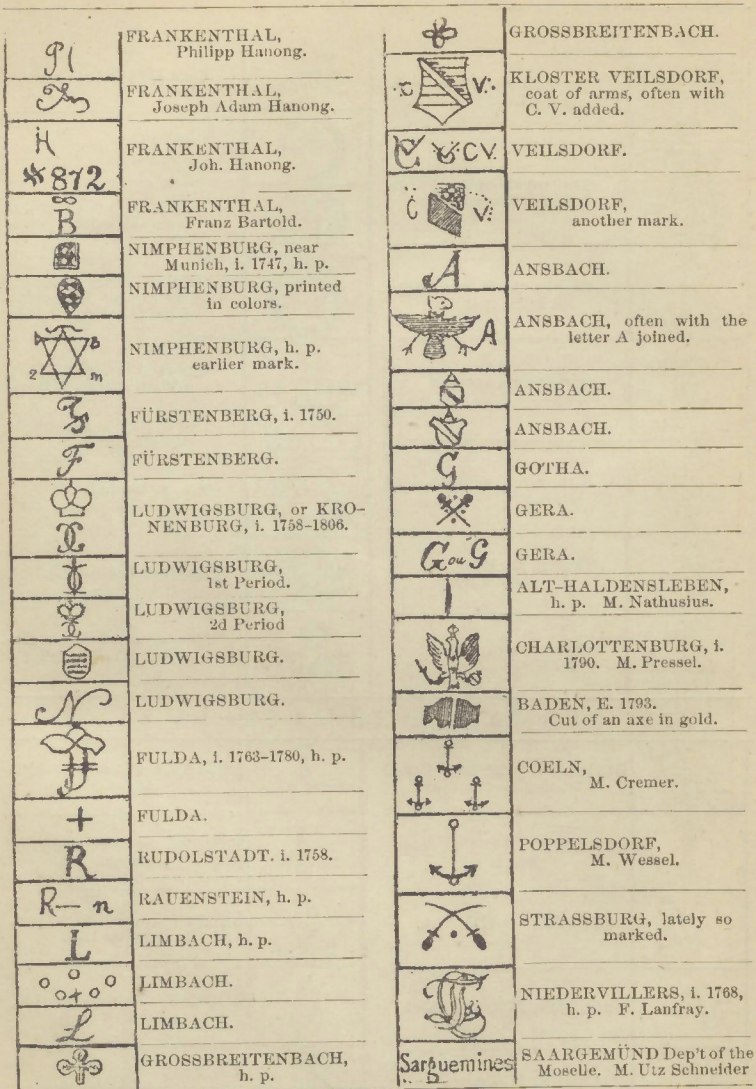 PH
FRANKENTHAL,
Philipp Hanong.
FRANKENTHAL,
Joseph Adam Hanong.
H
872
FRANKENTHAL,
Joh. Hanong.
B
FRANKENTHAL,
Franz Bartold.
NIMPHENBURG, near
Munich, i. 1747, h. p.
NIMPHENBURG, printed
in colors.
2 B m
NIMPHENBURG, h. p.
earlier mark.
FÜRSTENBERG, i. 1750.
F
FÜRSTENBERG.
LUDWIGSBURG, or KRO-
NENBURG, i. 1758-1806.
LUDWIGSBURG,
1st Period.
LUDWIGSBURG,
2d Period
LUDWIGSBURG.
N
LUDWIGSBURG.
FULDA, i. 1763-1780, h. p.
+
FULDA.
R
RUDOLSTADT. i. 1758.
R— n
RAUENSTEIN, h. p.
L
LIMBACH, h. p.
LIMBACH.
L
LIMBACH.
GROSSBREITENBACH,
h. p.
GROSSBREITENBACH.
C V.
KLOSTER VEILSDORF,
coat of arms, often with
C. V. added.
CV
VEILSDORF.
C V.
VEILSDORF,
another mark.
A
ANSBACH.
A
ANSBACH, often with the
letter A joined.
ANSBACH.
ANSBACH.
G
GOTHA.
GERA.
G ou G
GERA.
ALT-HALDENSLEBEN,
h. p. M. Nathusius.
CHARLOTTENBURG, i.
1790. M. Pressel.
BADEN, E. 1793.
Cut of an axe in gold.
COELN,
M. Cremer.
POPPELSDORF,
M. Wessel.
STRASSBURG, lately so
marked.
NIEDERVILLERS, i. 1768,
h. p. F. Lanfray.
Sarguemines
SAARGEMÜND Dep't of the
Moselle. M. Utz Schneider